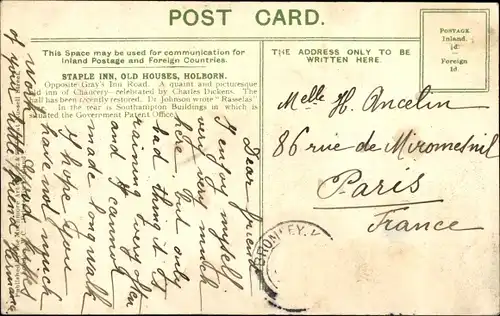 POST CARD.
This Space may be used for communication for
Inland Postage and Foreign Countries.
THE ADDRESS ONLY TO BE
WRITTEN HERE.
POSTAGE
Inland.
½d.
Foreign
1d.
STAPLE INN, OLD HOUSES, HOLBORN.
Opposite Gray's Inn Road. A quaint and picturesque
old inn of Chancery—celebrated by Charles Dickens. The
Hall has been recently restored. Dr Johnson wrote "Rasselas"
In the rear is Southampton Buildings in which is
situated the Government Patent Office.
Dear friend
I enjoy myself
very very much
here, but only
bad thing it is
raining very often
and I cannot
made long walk
I hope you
have not much
work
Good kisses
of your little friend
Melle H. Ancelin
86 rue de Miromesnil
Paris
France
BROMLEY. K